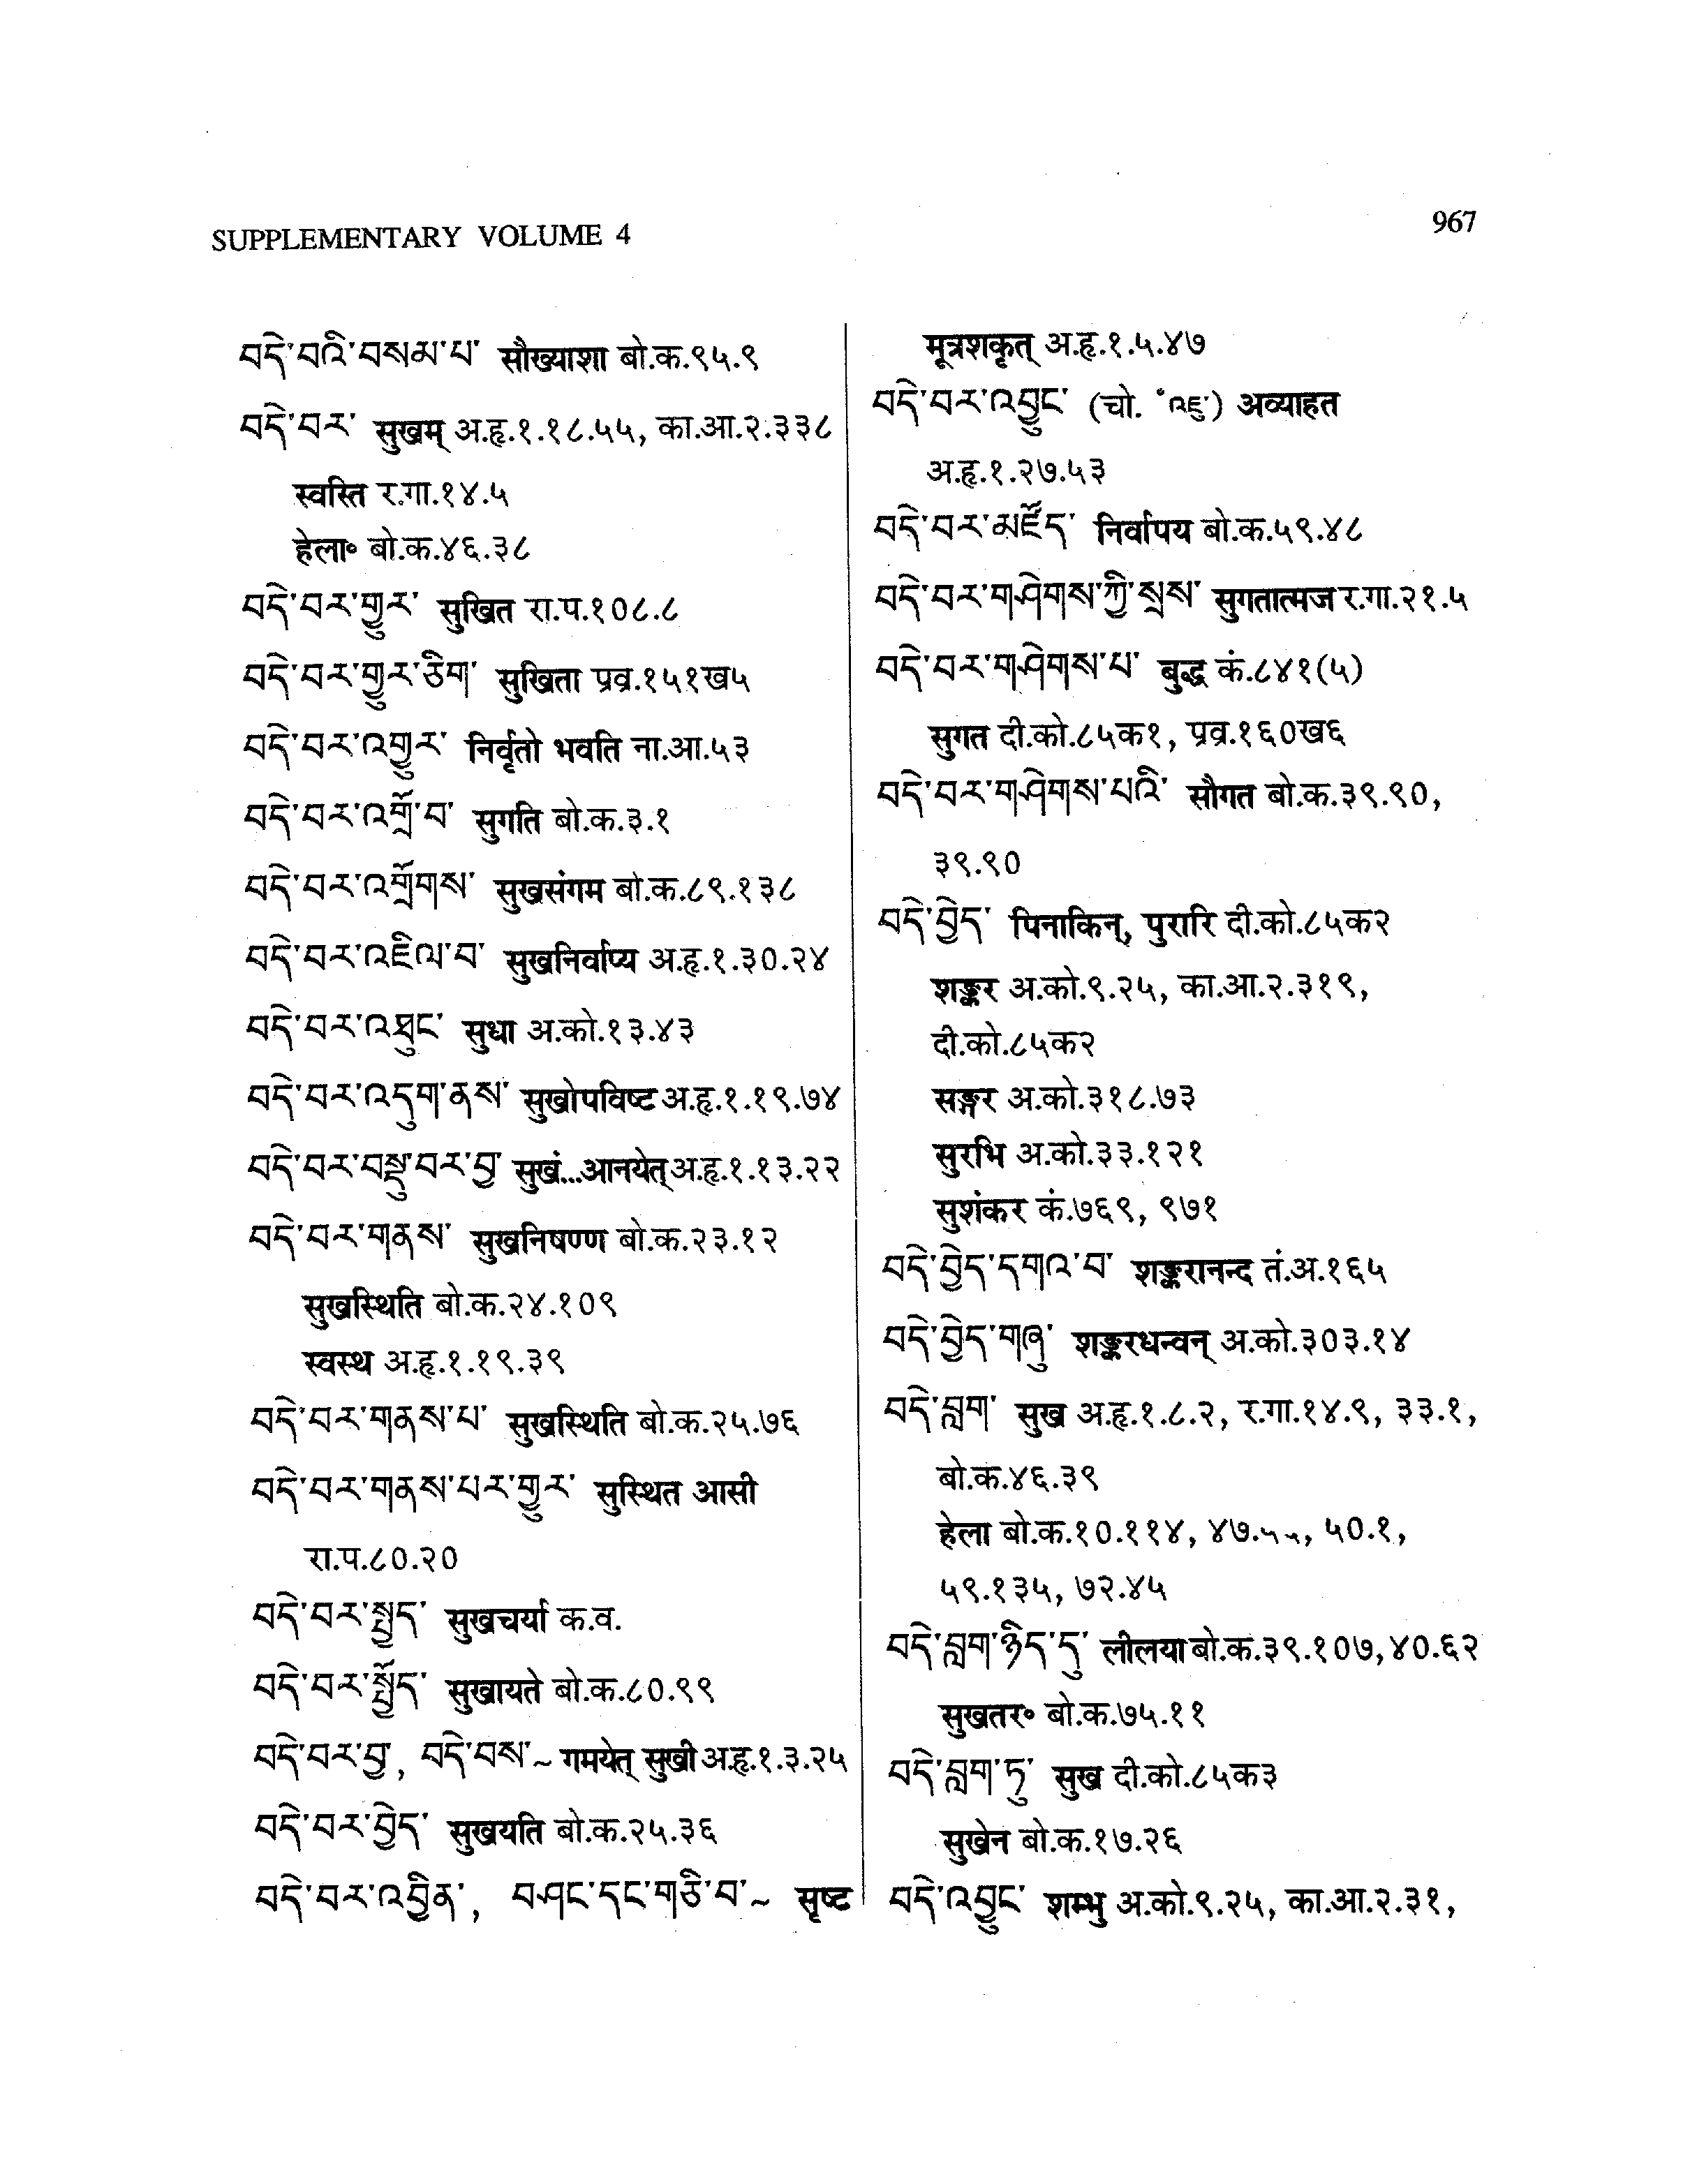 SUPPLEMENTARY VOLUME 4
967
བདེ་བའི་བསམ་པ་ सौख्याशा बो.क.९५.९
བདེ་བར་ सुखम् अ.हृ.१.१८.५५, का.आ.२.३३८
स्वस्ति र.गा.१४.५
हेला॰ बो.क.४६.३८
བདེ་བར་གྱུར་ सुखित रा.प.१०८.८
བདེ་བར་གྱུར་ཅིག་ सुखिता प्रव्र.१५१ख५
བདེ་བར་འགྱུར་ निर्वृतो भवति ना.आ.५३
བདེ་བར་འགྲོ་བ་ सुगति बो.क.३.१
བདེ་བར་འགྲོགས་ सुखसंगम बो.क.८९.१३८
བདེ་བར་འཇིལ་བ་ सुखनिर्वाप्य अ.हृ.१.३०.२४
བདེ་བར་འཐུང་ सुधा अ.को.१३.४३
བདེ་བར་འདུག་ནས་ सुखोपविष्ट अ.हृ.१.१९.७४
བདེ་བར་བསྡུ་བར་བྱ་ सुखं...आनयेत् अ.हृ.१.१३.२२
བདེ་བར་གནས་ सुखनिषण्ण बो.क.२३.१२
सुखस्थिति बो.क.२४.१०९
स्वस्थ अ.हृ.१.१९.३९
བདེ་བར་གནས་པ་ सुखस्थिति बो.क.२५.७६
བདེ་བར་གནས་པར་གྱུར་ सुस्थित आसी
रा.प.८०.२०
བདེ་བར་སྤྱད་ सुखचर्या क.व.
བདེ་བར་སྤྱོད་ सुखायते बो.क.८०.९९
བདེ་བར་བྱ་, བདེ་བས་~ गमयेत् सुखी अ.हृ.१.३.२५
བདེ་བར་བྱེད་ सुखयति बो.क.२५.३६
བདེ་བར་འབྱིན་, བཤང་དང་གཅི་བ་~ सृष्ट
मूत्रशकृत् अ.हृ.१.५.४७
བདེ་བར་འབྱུང་ (चो. ॰འཇུ་) अव्याहत
अ.हृ.१.२७.५३
བདེ་བར་མཛོད་ निर्वापय बो.क.५९.४८
བདེ་བར་གཤེགས་ཀྱི་སྲས་ सुगतात्मज र.गा.२१.५
བདེ་བར་གཤེགས་པ་ बुद्ध कं.८४१(५)
सुगत दी.को.८५क१, प्रव्र.१६०ख६
བདེ་བར་གཤེགས་པའི་ सौगत बो.क.३९.९०,
३९.९०
བདེ་བྱེད་ पिनाकिन्, पुरारि दी.को.८५क२
शङ्कर अ.को.९.२५, का.आ.२.३१९,
दी.को.८५क२
सङ्गर अ.को.३१८.७३
सुरभि अ.को.३३.१२१
सुशंकर कं.७६९, ९७१
བདེ་བྱེད་དགའ་བ་ शङ्करानन्द तं.अ.१६५
བདེ་བྱེད་གཞུ་ शङ्करधन्वन् अ.को.३०३.१४
བདེ་བླག་ सुख अ.हृ.१.८.२, र.गा.१४.९, ३३.१,
बो.क.४६.३९
हेला बो.क.१०.११४, ५०.१,
५९.१३५, ७२.४५
བདེ་བླག་ཉིད་དུ་ लीलया बो.क.३९.१०७,४०.६२
सुखतर॰ बो.क.७५.११
བདེ་བླག་ཏུ་ सुख दी.को.८५क३
सुखेन बो.क.१७.२६
བདེ་འབྱུང་ शम्भु अ.को.९.२५, का.आ.२.३१,